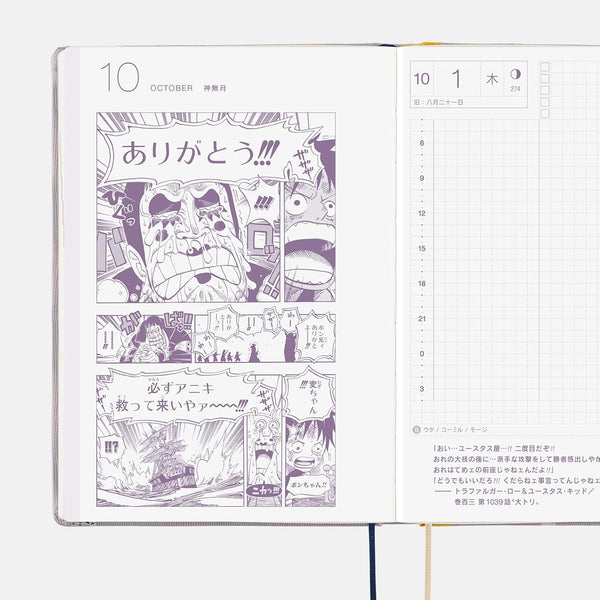 10 OCTOBER 神無月
ありがとう!!!
!!!
ボン兄
ありがとよ
必ずアニキ
救って来いやァ〜〜〜!!!
!!?
ニカッ!!!
麦ちゃん
ボンちゃん!!
10 1 木
274
旧:八月二十一日
6
9
12
15
18
21
0
3
B ワタ / コーミル / モージ
「おい…ユースタス屋…!! 二度目だぞ!!
おれの大技の後に…派手な攻撃をして勝者感出しやが
おれはてめェの前座じゃねェんだよ!!」
「どうでもいいだろ!!! くだらねェ事言ってんじゃねェ
―― トラファルガー・ロー&ユースタス・キッド/
巻百三 第1039話“大トリ”